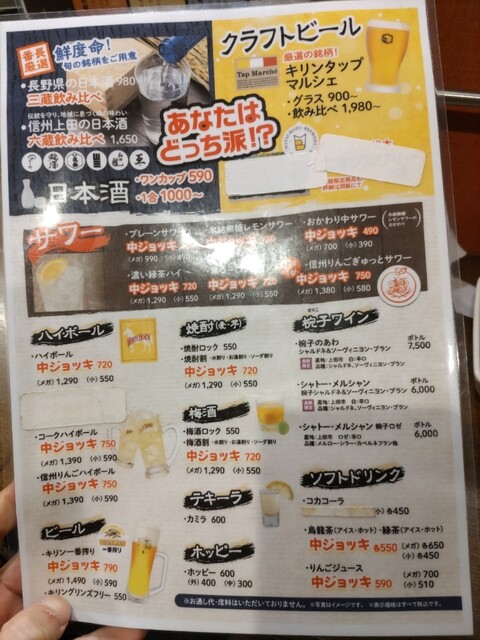 番長厳選
鮮度命!
旬の銘柄をご用意
・長野県の日本酒 980
三蔵飲み比べ
伝統を守り、地域に息づく蔵の味わい
・信州上田の日本酒
六蔵飲み比べ 1,650
日本酒
・ワンカップ 590
・1合 1000～
クラフトビール
厳選の銘柄!
Tap Marché
キリンタップ
マルシェ
・グラス 900～
・飲み比べ 1,980～
あなたは
どっち派!?
サワー
・プレーンサワー
中ジョッキ
(メガ) 990
・氷結無糖レモンサワー
中ジョッキ
・おかわり中サワー
中ジョッキ 490
(メガ) 700 (小) 390
・濃い緑茶ハイ
中ジョッキ 720
(メガ) 1,290 (小) 550
中ジョッキ 720
(メガ) 1,290 (小) 550
・信州りんごぎゅっとサワー
中ジョッキ 750
(メガ) 1,380 (小) 580
ハイボール
・ハイボール
中ジョッキ 720
(メガ) 1,290 (小) 550
・コークハイボール
中ジョッキ 750
(メガ) 1,390 (小) 590
・信州りんごハイボール
中ジョッキ 750
(メガ) 1,390 (小) 590
ビール
・キリン一番搾り
中ジョッキ 790
(メガ) 1,490 (小) 590
・キリングリンズフリー 550
一番搾り
焼酎(麦・芋)
・焼酎ロック 550
・焼酎割・水割り・お湯割り・ソーダ割り
中ジョッキ 720
(メガ) 1,290 (小) 550
梅酒
・梅酒ロック 550
・梅酒割・水割り・お湯割り・ソーダ割り
中ジョッキ 720
(メガ) 1,290 (小) 550
テキーラ
・カミラ 600
ホッピー
・ホッピー 600
(外) 400 (中) 300
椀子ワイン
・椀子のあわ
シャルドネ&ソーヴィニヨン・ブラン
産地:上田市 白:辛口
品種:シャルドネ、ソーヴィニヨン・ブラン
ボトル
7,500
・シャトー・メルシャン
椀子シャルドネ&ソーヴィニヨン・ブラン
産地:上田市 白:辛口
品種:シャルドネ、ソーヴィニヨン・ブラン
ボトル
6,000
・シャトー・メルシャン 椀子ロゼ
産地:上田市 ロゼ:辛口
品種:メルロー・シラー・カベルネフラン他
ボトル
6,000
ソフトドリンク
・コカコーラ
小 各450
・烏龍茶(アイス・ホット)・緑茶(アイス・ホット)
中ジョッキ 各550 (メガ) 各650
(小) 各450
・りんごジュース
中ジョッキ 590 (メガ) 700
(小) 510
※お通し代・席料はいただいておりません。※写真はイメージです。※表示価格はすべて税込です。